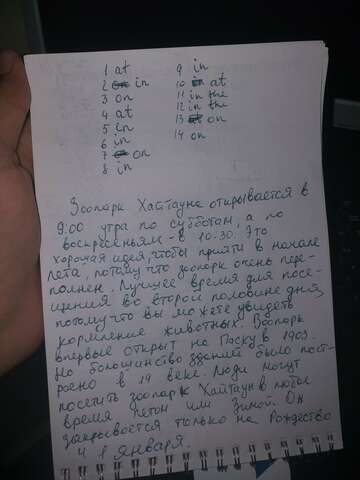 1 at 9 in
2 in 10 at
3 on 11 in the
4 at 12 in the
5 in 13 on
6 in 14 on
7 on
8 in
Зоопарк Хайтауна открывается в
9:00 утра по субботам, а по
воскресеньям - в 10:30. Это
хорошая идея, чтобы прийти в начале
лета, потому что зоопарк очень пере-
полнен. Лучшее время для посе-
щения во второй половине дня,
потому что вы можете увидеть
кормление животных. Зоопарк
впервые открыт на Пасху в 1903.
Но большинство зданий было пост-
роено в 19 веке. Люди могут
посетить зоопарк Хайтаун в любое
время летом или зимой. Он
закрывается только на Рождество
и 1 января.